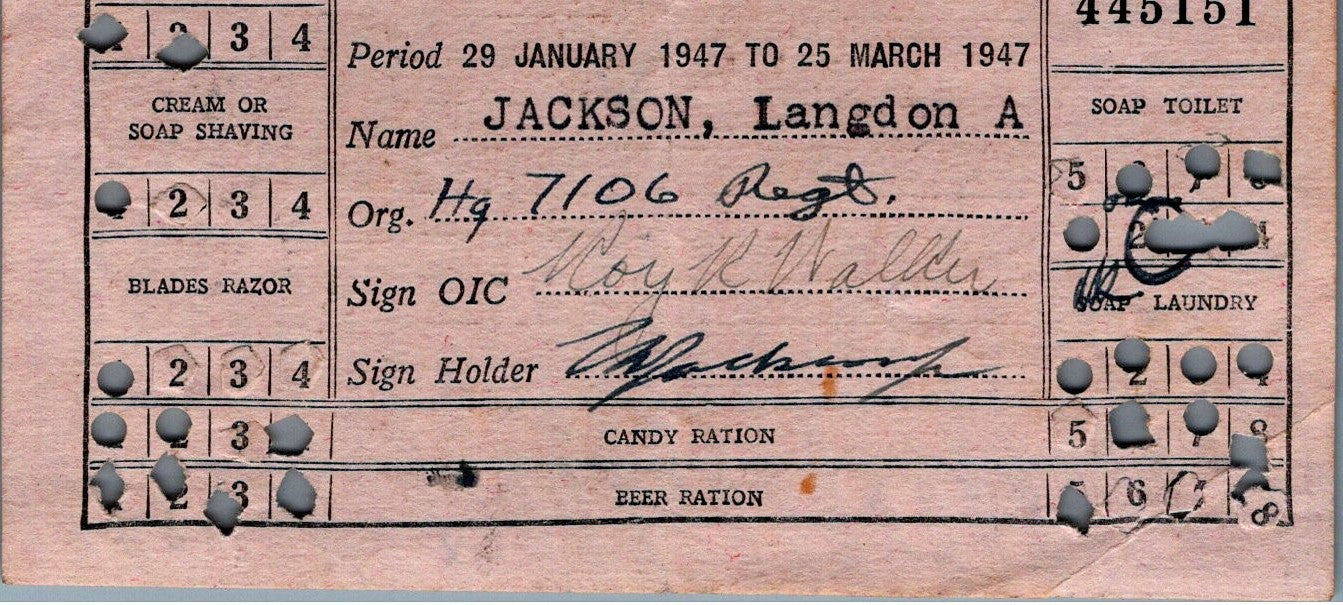 445151
3 4
Period 29 JANUARY 1947 TO 25 MARCH 1947
CREAM OR
SOAP SHAVING
SOAP TOILET
Name JACKSON, Langdon A
2 3 4
5
Org. Hq 7106 Regt.
2
BLADES RAZOR
Sign OIC Roy R Walker
SOAP LAUNDRY
2 3 4
Sign Holder
2
3
CANDY RATION
5
2 3
BEER RATION
6 8